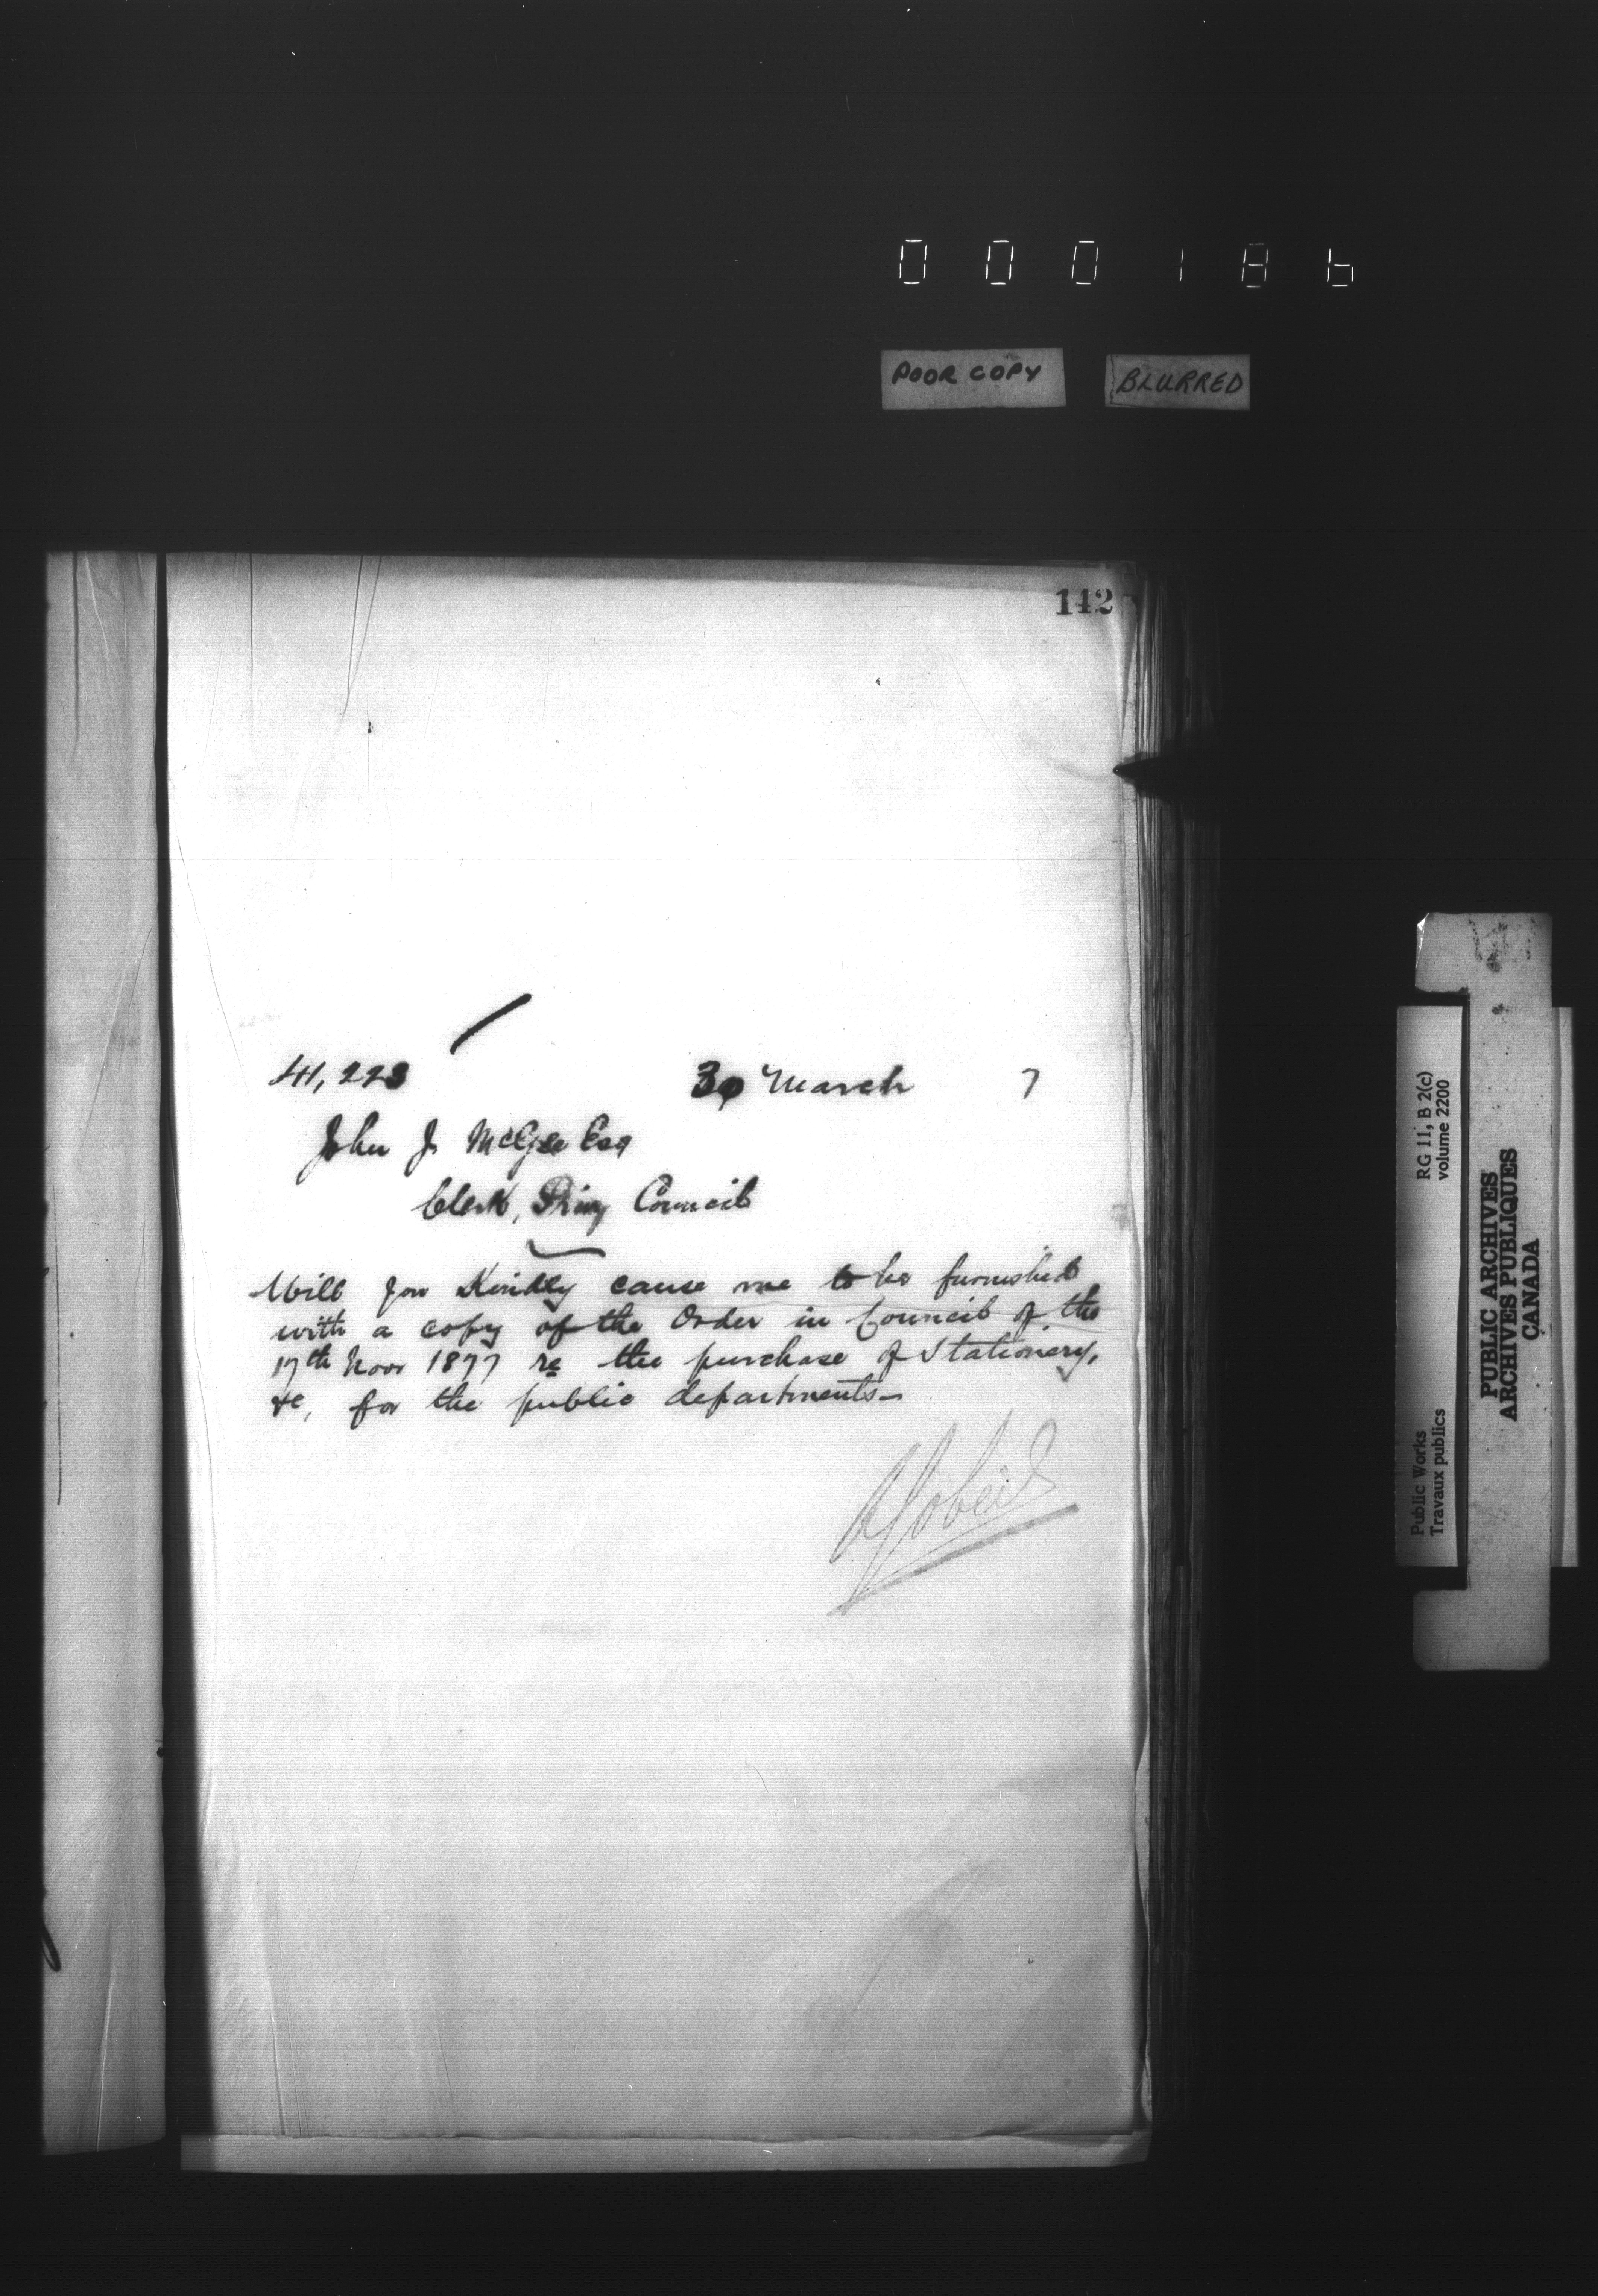 000186
POOR COPY
BLURRED
142
41,223
30 March 7
John J. McGee Esq
Clerk, Privy Council
Will you kindly cause me to be furnished
with a copy of the Order in Council of the
17th Novr 1877 re the purchase of Stationery,
&c, for the public departments—
AGobeil
RG 11, B 2(c)
volume 2200
Public Works
Travaux publics
PUBLIC ARCHIVES
ARCHIVES PUBLIQUES
CANADA